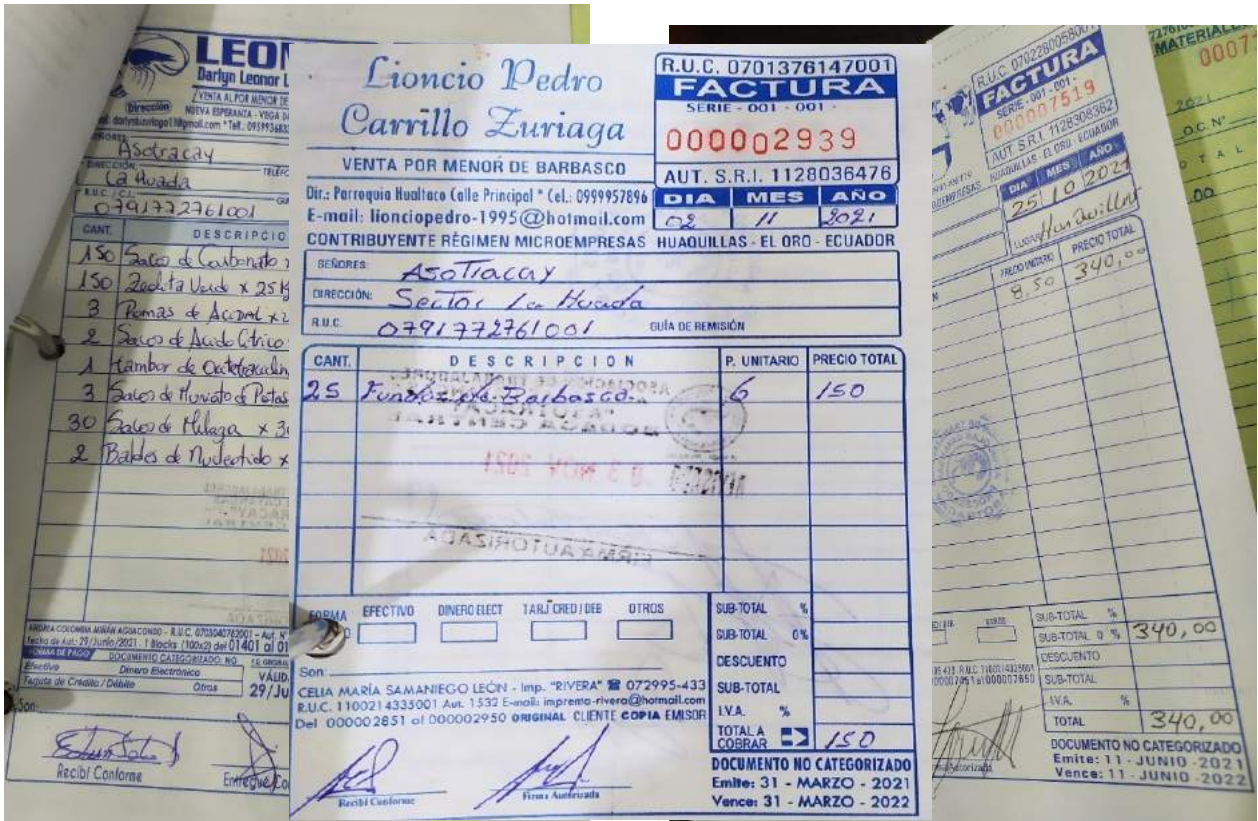 LEON
Darlyn Leonor L
VENTA AL POR MENOR DE
Dirección
NUEVA ESPERANZA - VEGA
Asotracay
DIRECCIÓN:
La Huada
R.U.C. / C.I.
0791772761001
CANT. DESCRIPCIO
150 Sacos de Carbonato
150 Zeolita Verde x 25 Kg
3 Pomas de
2 Sacos de Acido Citrico
1 tambor de
3 Sacos de Muriato de Potas
30 Sacos de Melaza x 3
2 Baldes de Nucleotido x
Fecha de Aut.: 29/Junio/2021 - 1 Blocks (100x2) del 01401 al 01
FORMA DE PAGO DOCUMENTO CATEGORIZADO: NO
Efectivo Dinero Electrónico
Tarjeta de Crédito / Débito Otros
VÁLID
29/Ju
Son:
Recibí Conforme
Lioncio Pedro
Carrillo Zuriaga
VENTA POR MENOR DE BARBASCO
Dir.: Parroquia Hualtaco Calle Principal * Cel.: 0999957896
E-mail: lionciopedro-1995@hotmail.com
CONTRIBUYENTE RÉGIMEN MICROEMPRESAS HUAQUILLAS - EL ORO - ECUADOR
R.U.C. 0701376147001
FACTURA
SERIE - 001 - 001 -
000002939
AUT. S.R.I. 1128036476
DIA MES AÑO
02 11 2021
SEÑORES: Asotracay
DIRECCIÓN: Sector La Huada
R.U.C. 0791772761001 GUÍA DE REMISIÓN
CANT. DESCRIPCION P. UNITARIO PRECIO TOTAL
25 Fundas de Barbasco 6 150
03 NOV 2021
FIRMA AUTORIZADA
FORMA EFECTIVO DINERO ELECT TARJ CRED / DEB OTROS
Son:
CELIA MARÍA SAMANIEGO LEÓN - Imp. "RIVERA" ☎ 072995-433
R.U.C. 1100214335001 Aut. 1532 E-mail: imprenta-rivera@hotmail.com
Del 000002851 al 000002950 ORIGINAL CLIENTE COPIA EMISOR
Recibí Conforme Firma Autorizada
SUB-TOTAL %
SUB-TOTAL 0%
DESCUENTO
SUB-TOTAL
I.V.A. %
TOTAL A COBRAR 150
DOCUMENTO NO CATEGORIZADO
Emite: 31 - MARZO - 2021
Vence: 31 - MARZO - 2022
R.U.C. 0702280058001
FACTURA
SERIE - 001 - 001 -
000007519
AUT. S.R.I. 1128308362
HUAQUILLAS - EL ORO - ECUADOR
DIA MES AÑO
25 10 2021
LUGAR: Huaquillas
PRECIO UNITARIO PRECIO TOTAL
8,50 340,00
SUB-TOTAL %
SUB-TOTAL 0 % 340,00
DESCUENTO
SUB-TOTAL
I.V.A. %
TOTAL 340,00
DOCUMENTO NO CATEGORIZADO
Emite: 11 - JUNIO - 2021
Vence: 11 - JUNIO - 2022
MATERIALE
0007
2021
O.C. Nº